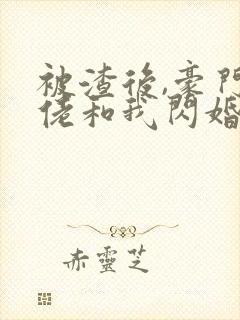 被渣後,豪門
佬和我閃婚
赤靈芝